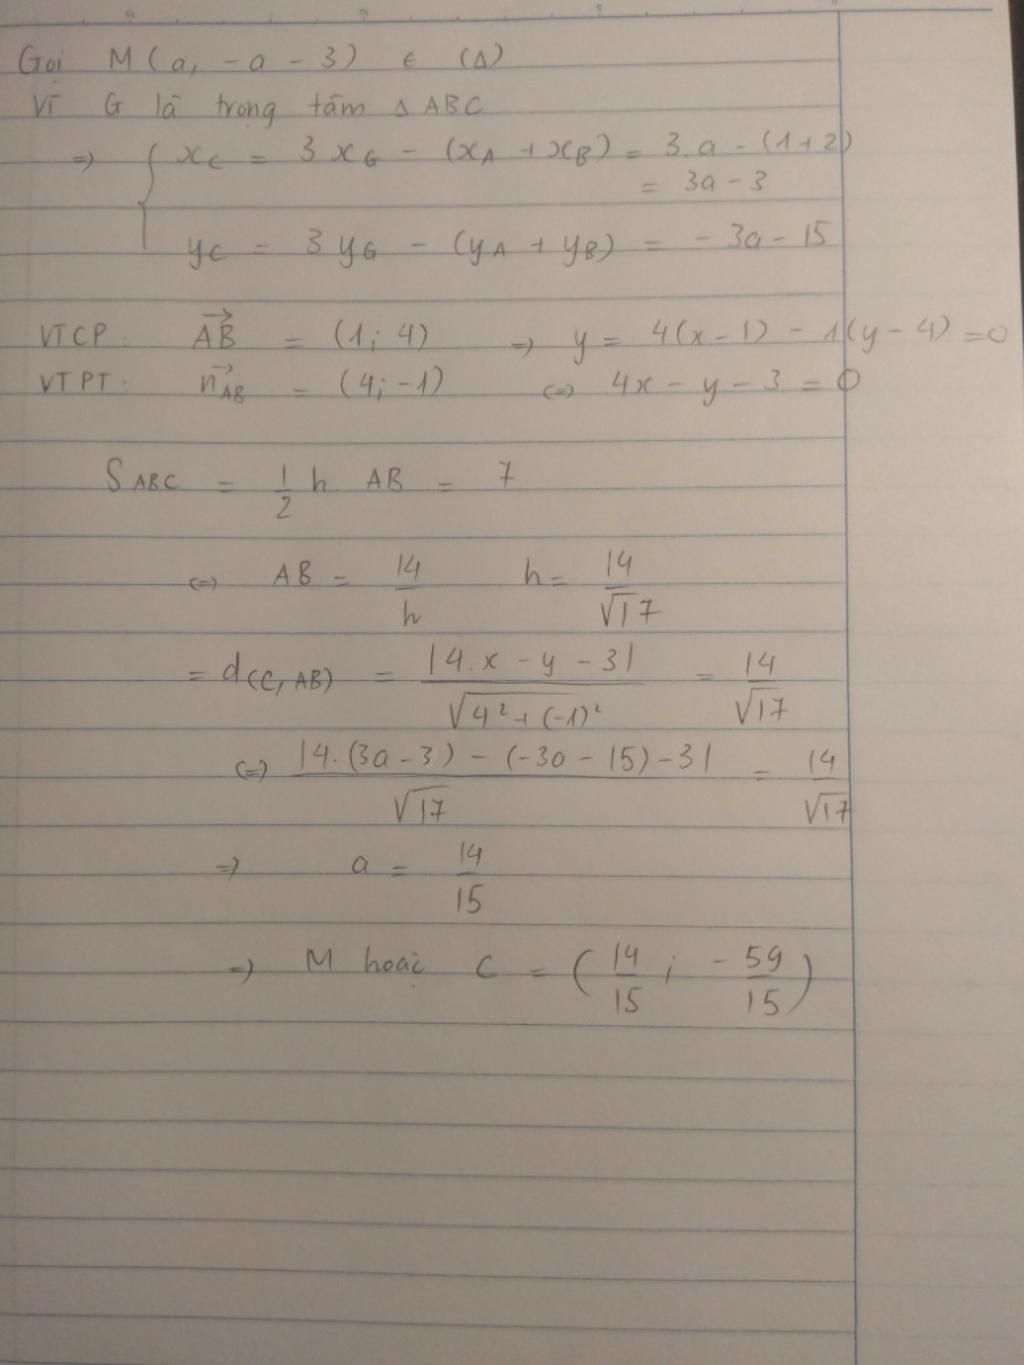 Gọi M(a, -a - 3) ∈ (Δ)
Vì G là trọng tâm Δ ABC
=> { x_C = 3x_G - (x_A + x_B) = 3.a - (1+2)
= 3a - 3
y_C = 3y_G - (y_A + y_B) = -3a - 15
VTCP: \overrightarrow{AB} = (1; 4) => y = 4(x-1) - 1(y-4) = 0
VTPT: \vec{n}_{AB} = (4; -1) <=> 4x - y - 3 = 0
S_{ABC} = \frac{1}{2} h AB = 7
<=> AB = \frac{14}{h} h = \frac{14}{\sqrt{17}}
= d_{(C, AB)} = \frac{|4.x - y - 3|}{\sqrt{4^2 + (-1)^2}} = \frac{14}{\sqrt{17}}
<=> \frac{|4.(3a - 3) - (-3a - 15) - 3|}{\sqrt{17}} = \frac{14}{\sqrt{17}}
=> a = \frac{14}{15}
=> M hoặc C = (\frac{14}{15}; -\frac{59}{15})